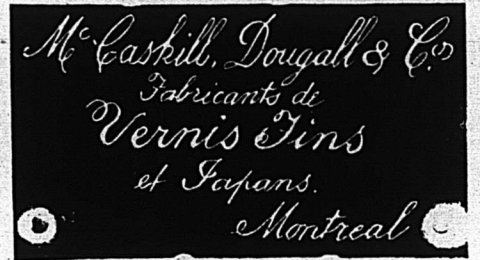 Mc.Caskill, Dougall & Co
Fabricants de
Vernis Fins
et Japans.
Montreal